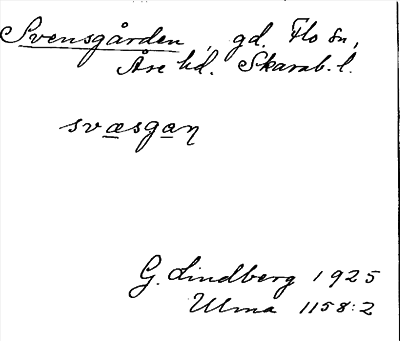 Svensgården, gd. Flo sn,
Åse hd. Skarab. l.
svæsgaɳ
G. Lindberg 1925
Ulma 1158:2